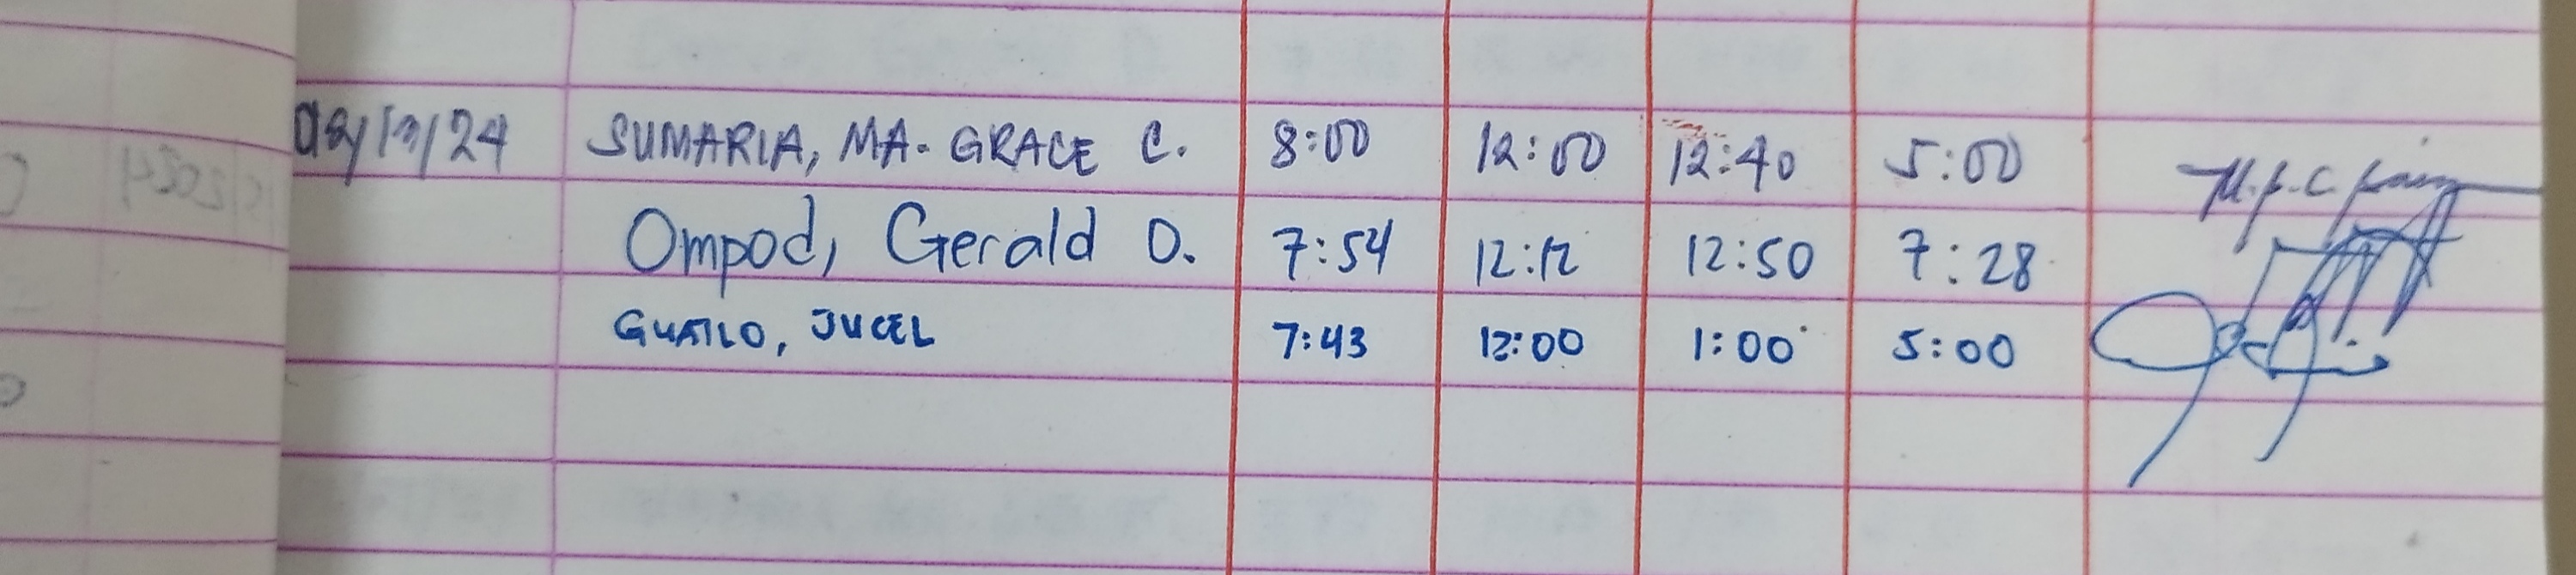 SUMARIA, MA. GRACE C. 8:00 12:00 12:40 5:00
Ompod, Gerald O. 7:54 12:12 12:50 7:28
GUATLO, JUCEL 7:43 12:00 1:00 5:00